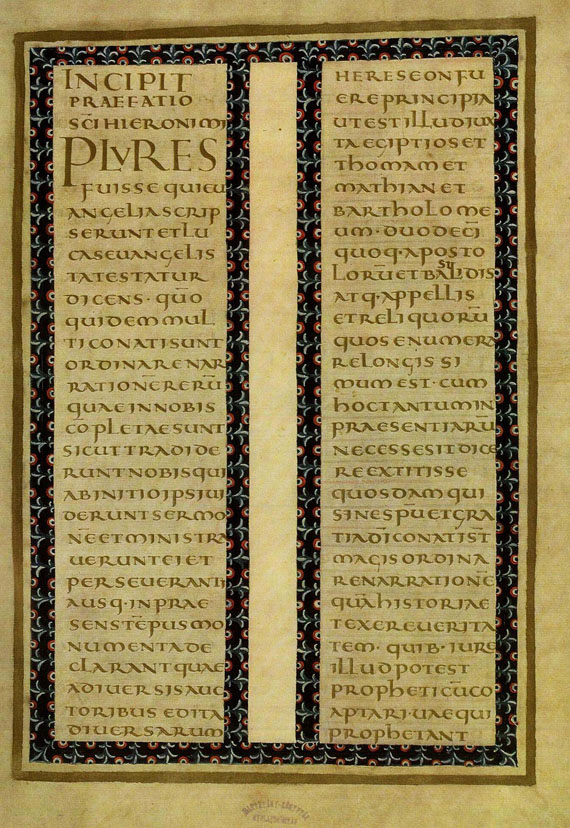 INCIPIT
PRAEFATIO
SCI HIERONIMI
PLURES
FUISSE QUI EU
ANGELIA SCRIP
SERUNT ET LU
CAS EUANGELIS
TA TESTATUR
DICENS · QUŌ
QUIDEM MUL
TI CONATI SUNT
ORDINARE NAR
RATIONĒ RERŪ
QUAE IN NOBIS
CŌPLETAE SUNT
SICUT TRADIDE
RUNT NOBIS QUI
AB INITIO IPSI UI
DERUNT SERMO
NĒ ET MINISTRA
UERUNT EI ET
PERSEUERANTI
A USQ · IN PRAE
SENS TĒPUS MO
NUMENTA DE
CLARANT QUAE
A DIUERSIS AUC
TORIBUS EDITA
DIUERSARUM
HERESEON FU
ERE PRINCIPIA
UT EST ILLUD IUX
TA EGIPTIOS ET
THOMAM ET
MATHIAN ET
BARTHOLOME
UM · DUODECĪ
QUOQ · APOSTO
LORŪ ET BASILIDIS
ATQ · APPELLIS
ET RELIQUORŪ
QUOS ENUMERA
RE LONGISSI
MUM EST · CUM
HOC TANTUM IN
PRAESENTIARŪ
NECESSE SIT DICE
RE EXTITISSE
QUOSDAM QUI
SINE SPU ET GRA
TIA DĪ CONATI ST̄
MAGIS ORDINA
RE NARRATIONĒ
QUĀ HISTORIAE
TEXERE UERITA
TEM · QUIB · IURE
ILLUD POTEST
PROPHETICŪ CO
APTARI · UAE QUI
PROPHETANT